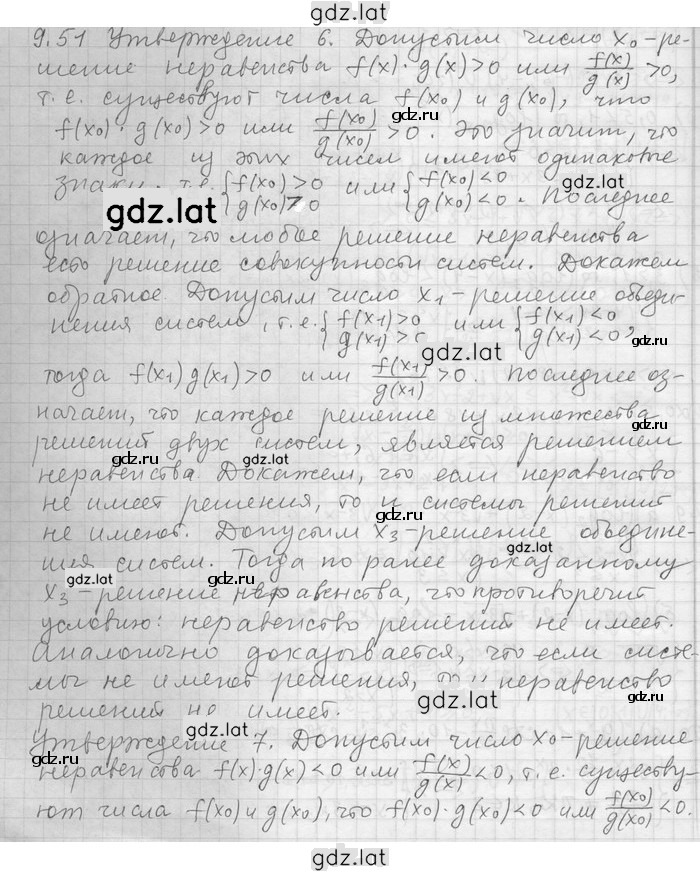 gdz.lat
9.51 Утверждение 6. Допустим число x₀-ре-
шение неравенства f(x)·g(x)>0 или f(x)/g(x)>0,
т.е. существуют числа f(x₀) и g(x₀), что
f(x₀)·g(x₀)>0 или f(x₀)/g(x₀)>0. Это значит, что
каждое из этих чисел имеют одинаковые
знаки, т.е. {f(x₀)>0 g(x₀)>0 или {f(x₀)<0 g(x₀)<0. Последнее
gdz.lat
означает, что любое решение неравенства
есть решение совокупности систем. Докажем
обратное. Допустим число x₁-решение объеди-
нения систем, т.е. {f(x₁)>0 g(x₁)> или {f(x₁)<0 g(x₁)<0,
gdz.ru
gdz.lat
тогда f(x₁)g(x₁)>0 или f(x₁)/g(x₁)>0. Последнее оз-
начает, что каждое решение из множества
решений двух систем, является решением
gdz.ru
gdz.lat
неравенства. Докажем, что если неравенство
не имеет решения, то и системы решений
не имеют. Допустим x₃-решение объедине-
gdz.ru
ния систем. Тогда по ранее доказанному
gdz.lat
gdz.ru
x₃-решение неравенства, что противоречит
условию: неравенство решений не имеет.
Аналогично доказывается, что если систе-
мы не имеют решения, неравенство
gdz.lat
решений не имеет.
gdz.lat
Утверждение 7. Допустим число x₀-решение
неравенства f(x)·g(x)<0 или f(x)/g(x)<0, т.е. существу-
gdz.ru
gdz.ru
ют числа f(x₀) и g(x₀), что f(x₀)·g(x₀)<0 или f(x₀)/g(x₀)<0.
gdz.lat